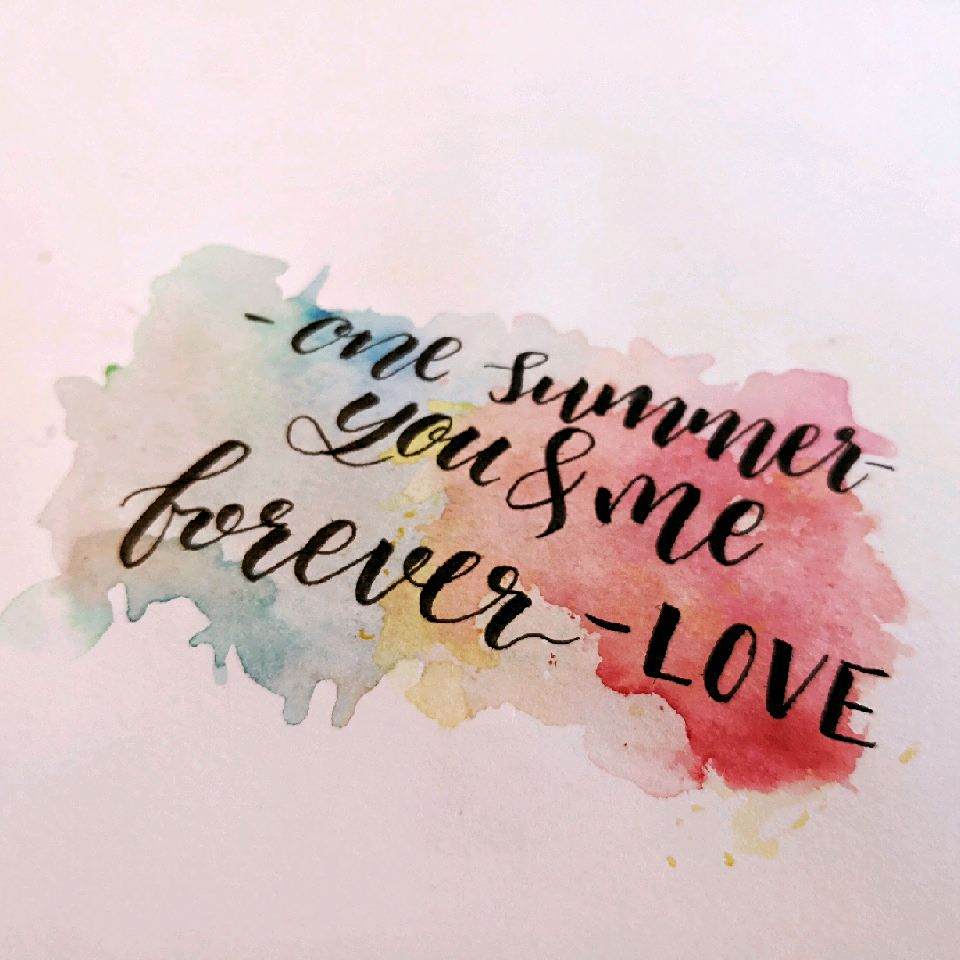 - one summer -
you & me
forever - LOVE